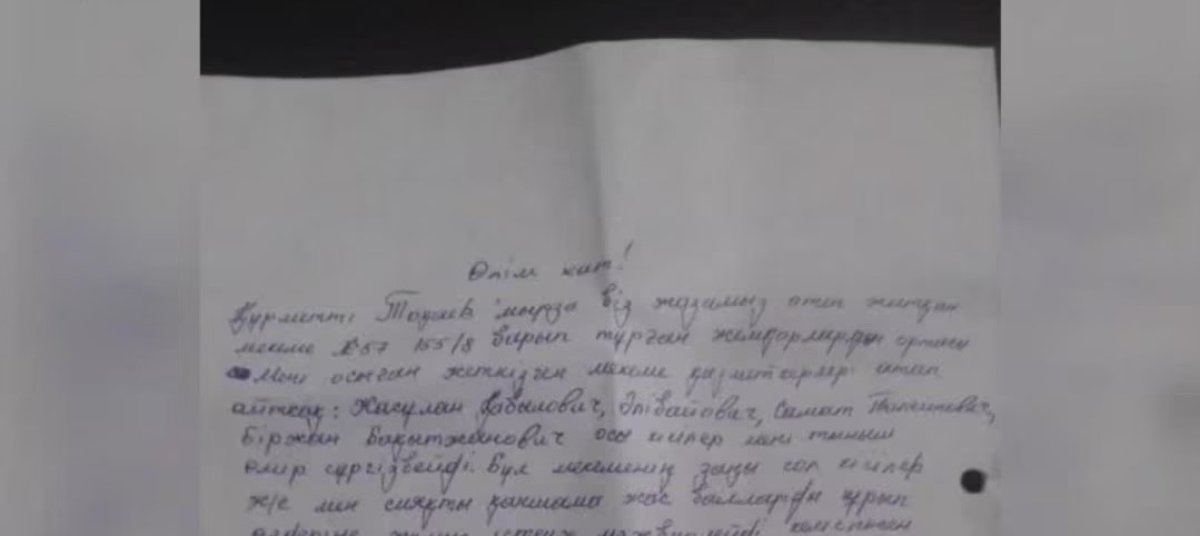 Өлім хат!
Құрметті Тоқаев мырза біз жазамыз өтеп жатқан
мекеме №67 155/8 барып тұрған жемқорлардың ортасы
Мені осыған жеткізген мекеме қызметкерлері атап
айтсақ: Жасулан Қабылович, Әлібайович, Самат
Біржан Бақытжанович осы кісілер мені тыныш
өмір сүргізбейді. Бұл мекеменің заңы сол кісілер
ж/е мен сияқты қаншама жас балларды құрып